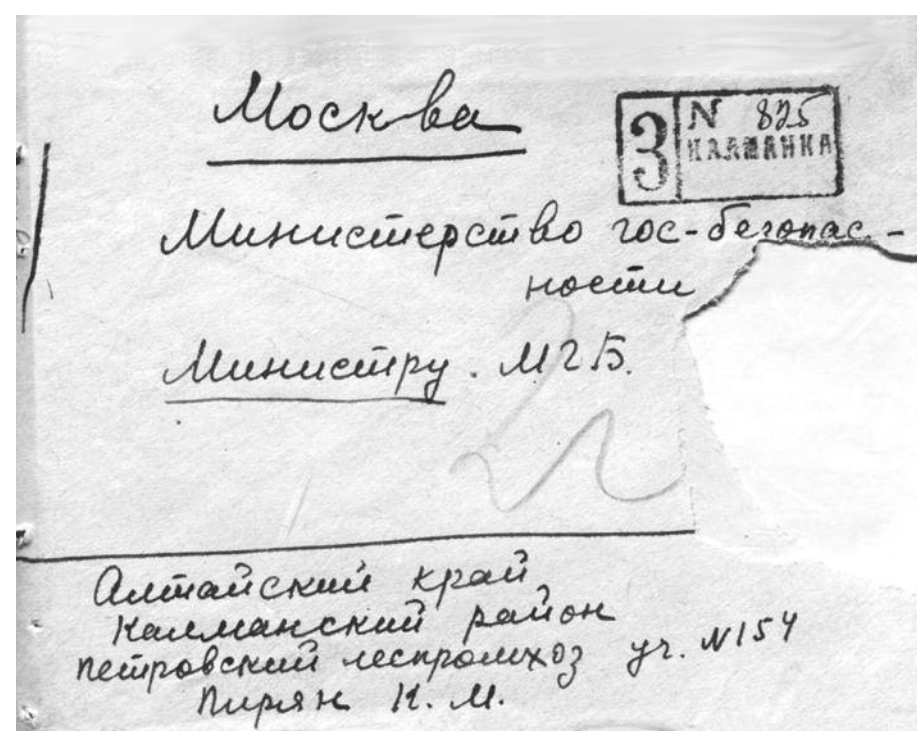 Москва
З N 825
КАЛМАНКА
Министерство гос-безопас-
ности
Министру. МГБ.
2
Алтайский край,
Калманский район
петровский леспромхоз уч. N154
Пирян К. М.